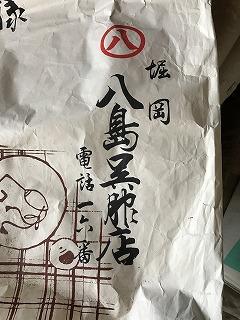 八
堀岡
八島呉服店
電話一六番
様